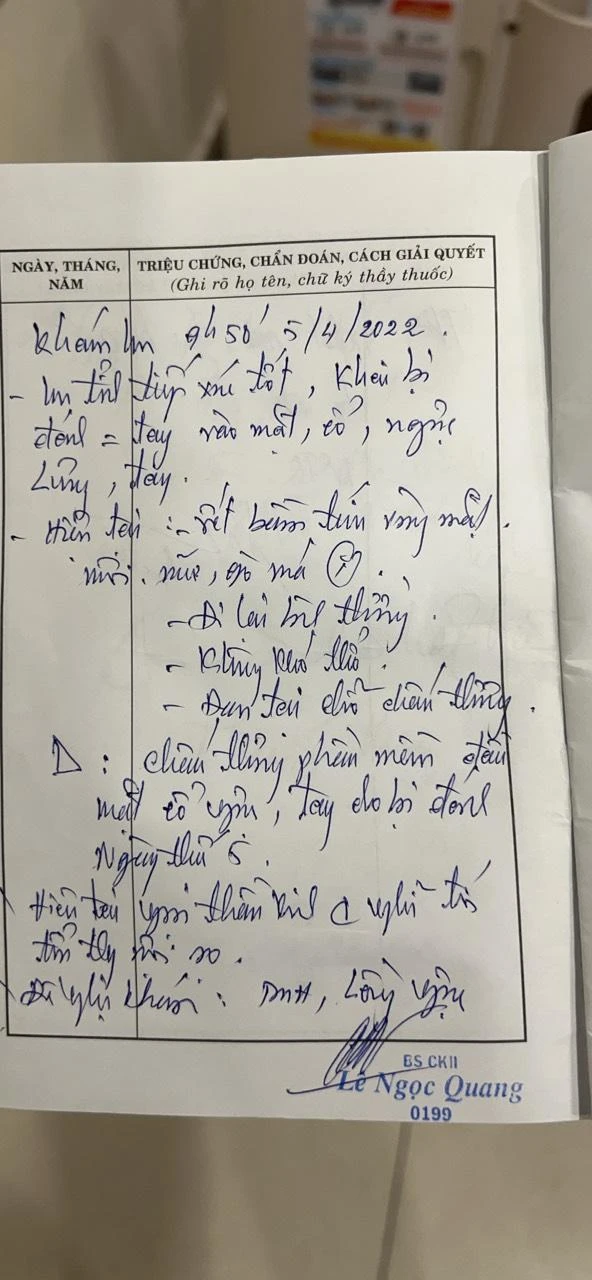 NGÀY, THÁNG, NĂM
TRIỆU CHỨNG, CHẨN ĐOÁN, CÁCH GIẢI QUYẾT
(Ghi rõ họ tên, chữ ký thầy thuốc)
Khám lúc 9h50' 5/4/2022.
- tỉnh tiếp xúc tốt, Khai bị
đánh = tay vào mặt, cổ, ngực
Lưng, tay.
- Hiện tại : - vết bầm tím vùng mặt.
môi. mũi, gò má
- Đi lại bình thường.
- Không khó thở.
- Đau tại chỗ chấn thương.
D : chấn thương phần mềm đầu
mặt cổ ngực, tay do bị đánh
Ngày thứ 5.
Hiện tại thần kinh nghĩ
Đề nghị khám : RHM, Lồng ngực
BS CKII
Lê Ngọc Quang
0199